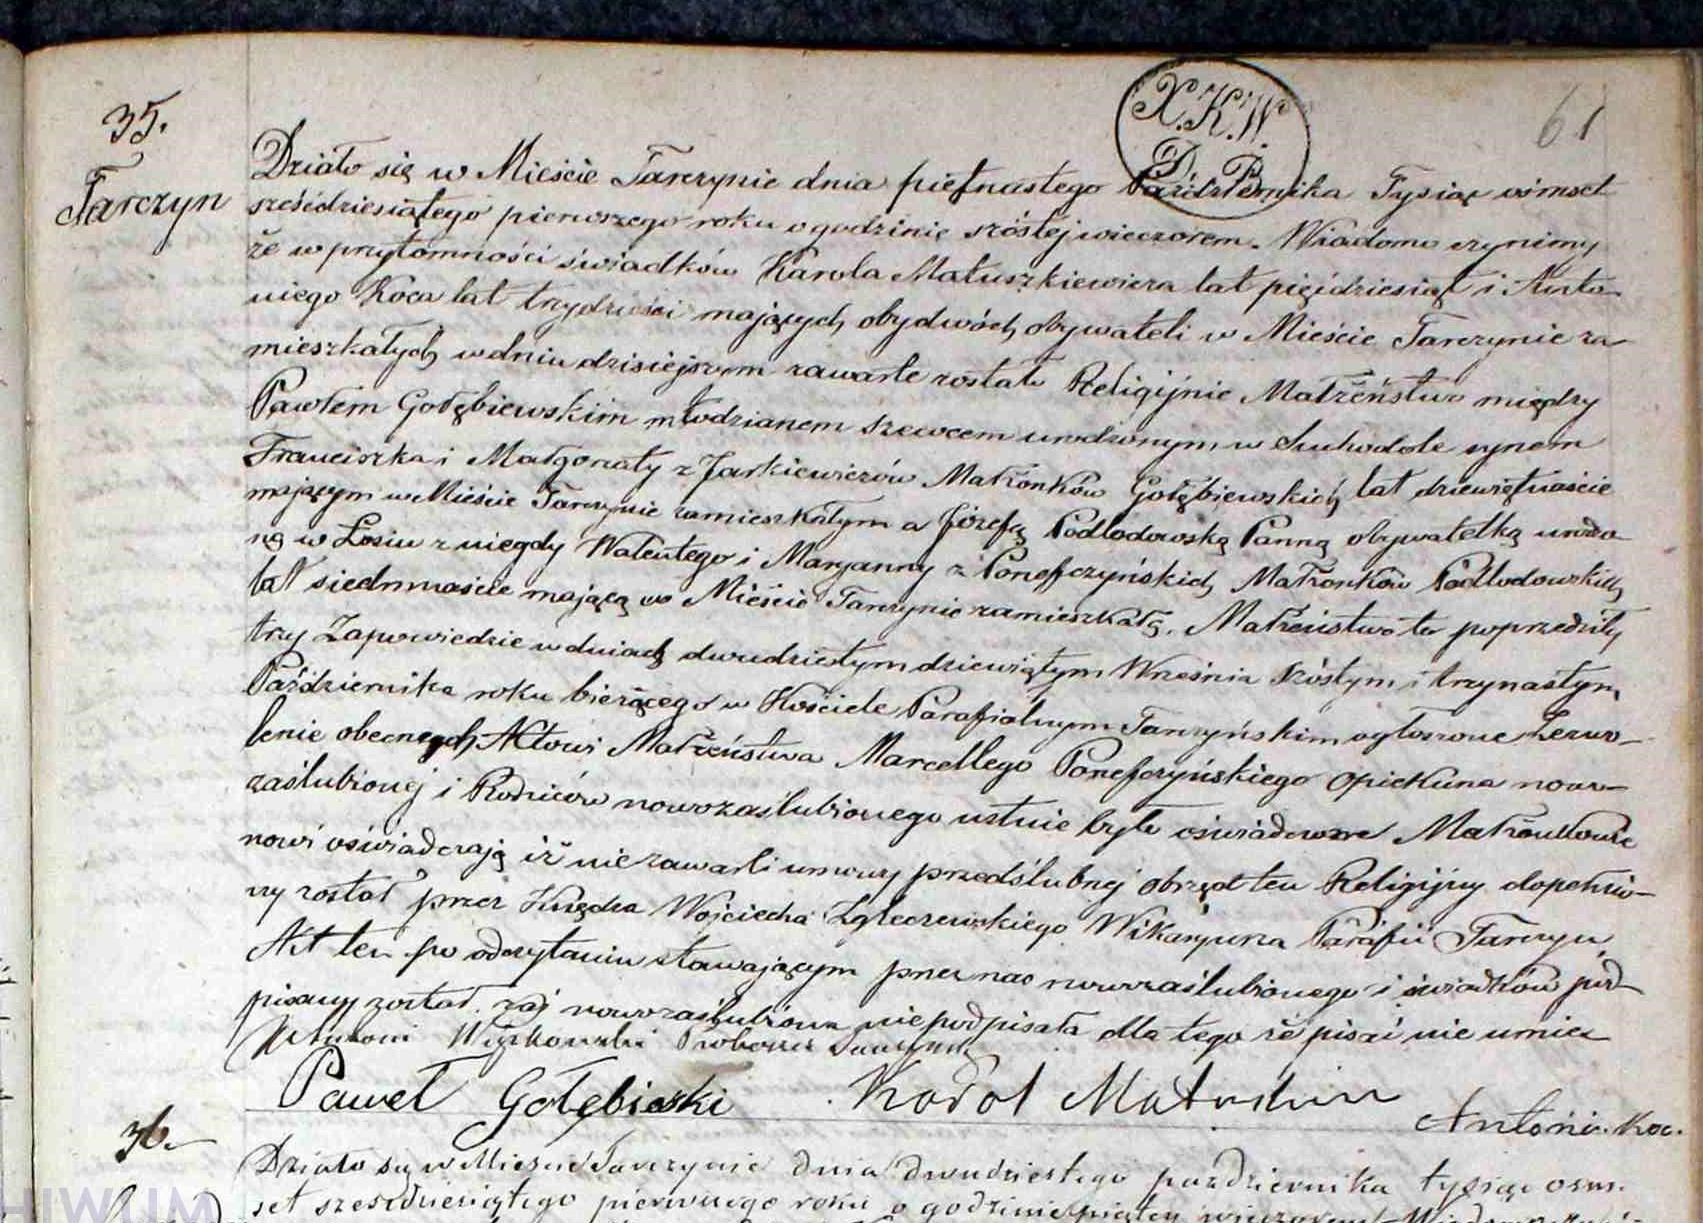 X.K.W.
D.P.
61
35.
Tarczyn
Działo się w Mieście Tarczynie dnia piętnastego Października Tysiąc ośmset
sześćdziesiątego pierwszego roku o godzinie szóstej wieczorem. Wiadomo czynimy
że w przytomności świadków Karola Matuszkiewicza lat pięćdziesiąt i Anto-
niego Koca lat trzydzieści mających obydwóch obywateli w Mieście Tarczynie za-
mieszkałych w dniu dzisiejszym zawarte zostało Religijnie Małżeństwo między
Pawłem Gołębiewskim młodzianem szewcem urodzonym w Suchodole synem
Franciszka i Małgorzaty z Jarkiewiczów Małżonków Gołębiewskich lat dziewiętnaście
mającym w Mieście Tarczynie zamieszkałym a Józefą Podlodowską Panną obywatelką urodzo-
ną w Łosiu z niegdy Walentego i Maryanny z Ponefczyńskich Małżonków Podlodowskich
lat siedmnaście mającą w Mieście Tarczynie zamieszkałą. Małżeństwo to poprzedziły
trzy Zapowiedzie w dniach dwudziestym dziewiątym Września szóstym i trzynastym
Października roku bieżącego w Kościele Parafialnym Tarczyńskim ogłoszone Zezwo-
lenie obecnych Aktowi Małżeństwa Marcellego Ponefczyńskiego opiekuna nowo-
zaślubionej i Rodziców nowozaślubionego ustnie było oświadczone Małżonkowie
nowi oświadczają iż nie zawarli umowy przedślubnej obrzęd ten Religijny dopełnio-
ny został przez Księdza Wojciecha Wikaryusza Parafii Tarczyn
Akt ten po odczytaniu stawającym przez nas nowozaślubionego i świadków pod-
pisany został zaś nowozaślubiona nie podpisała dla tego że pisać nie umie
Antoni Proboszcz
Paweł Gołębieski Karol
Antoni Koc.
36.
Działo się w Mieście Tarczynie dnia dwudziestego października tysiąc osm-
set sześćdziesiątego pierwszego roku o godzinie piątej wieczorem
HIWUM